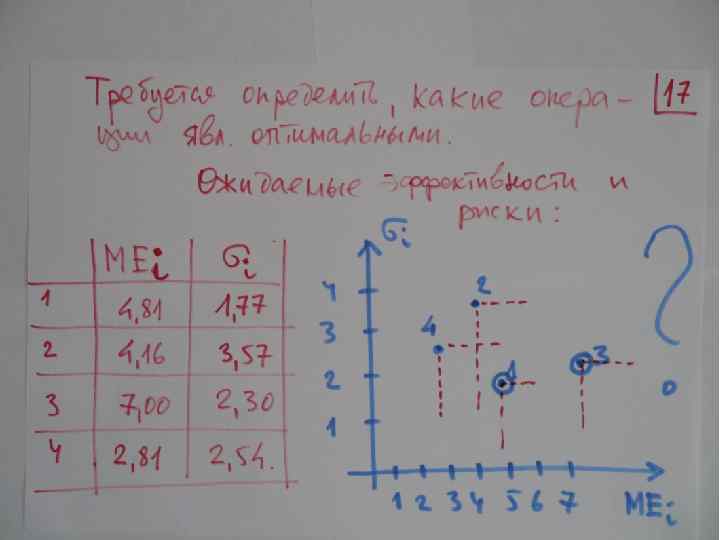 Требуется определить, какие опера- 17
ции явл. оптимальными.
Ожидаемые эффективности и
риски:
MEi σi
1 4,81 1,77
2 4,16 3,57
3 7,00 2,30
4 2,81 2,54.
σi
4
3
2
1
2
4
1
3
?
1 2 3 4 5 6 7 MEi